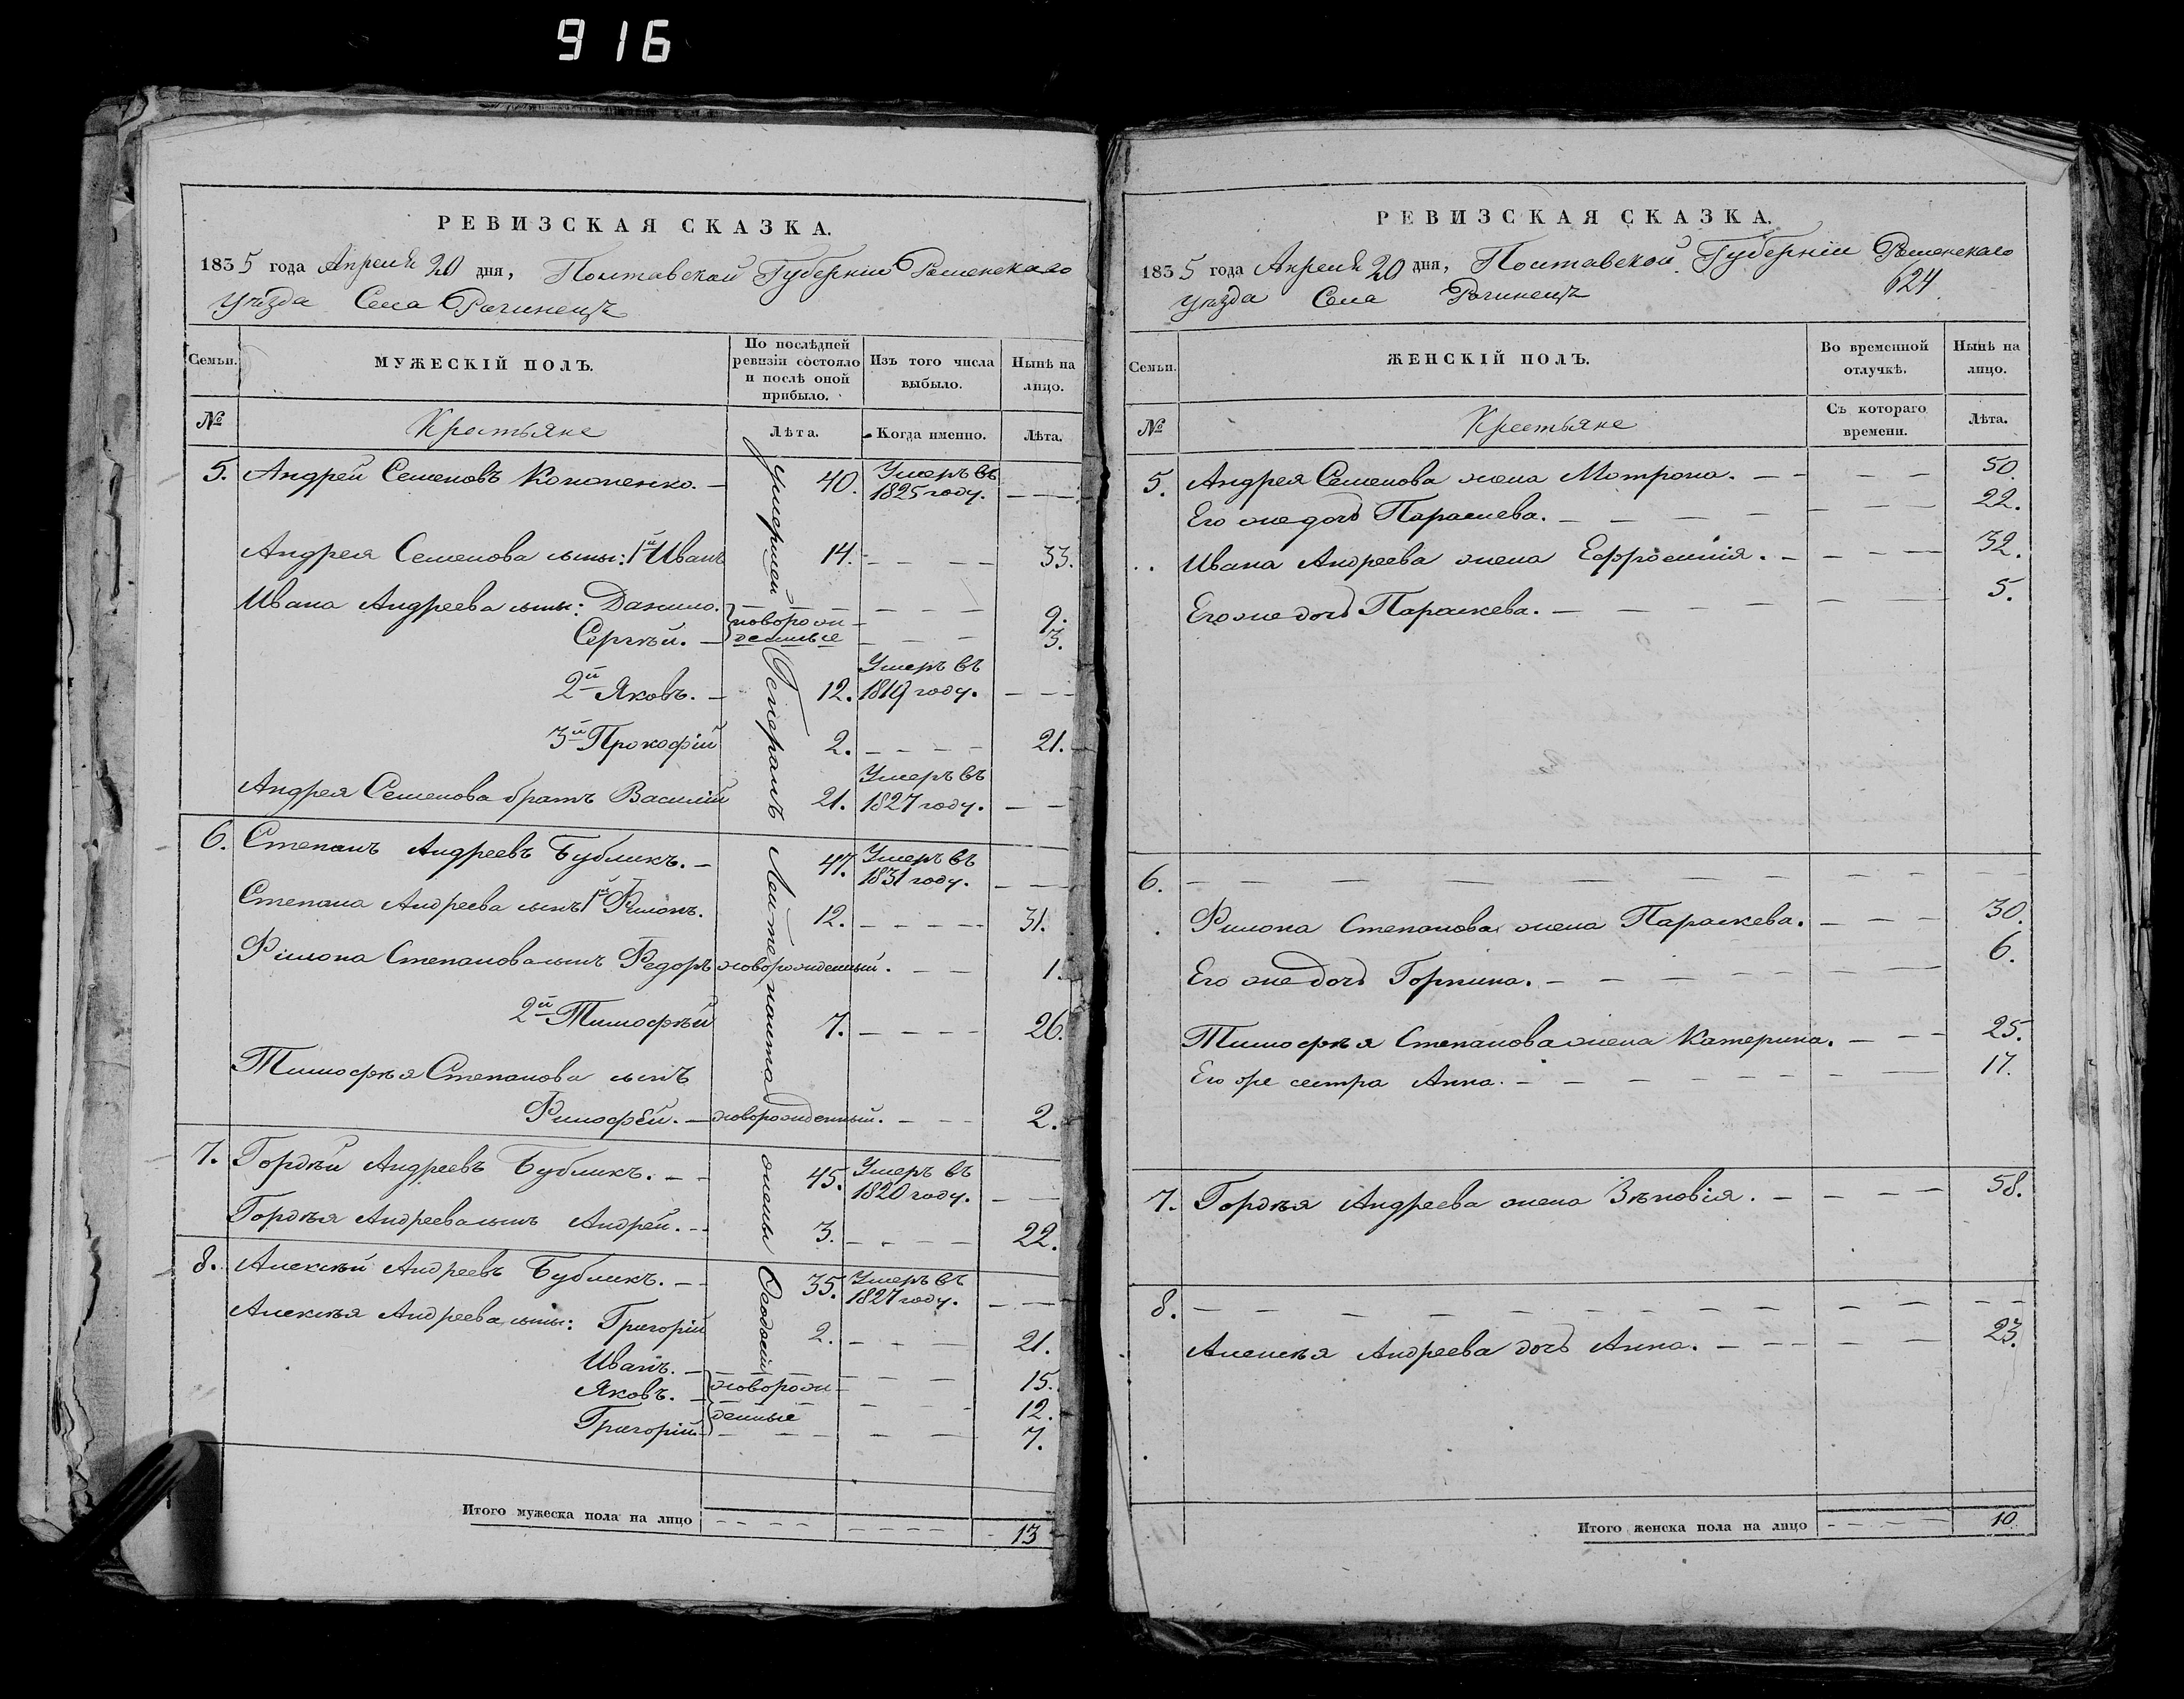 916
РЕВИЗСКАЯ СКАЗКА.
1835 года Апреля 20 дня, Полтавской Губерніи Роменскаго
Уѣзда Села Рогинецъ
Семьи. МУЖЕСКІЙ ПОЛЪ. По послѣдней ревизіи состояло и послѣ оной прибыло. Изъ того числа выбыло. Нынѣ на лицо.
№ Крестьяне Лѣта. Когда именно. Лѣта.
5. Андрей Семеновъ Кононенко. 40. Умеръ въ 1825 году.
Андрея Семенова сыны: 1й Иванъ 14. 33.
Ивана Андреева сыны: Данило. новорож- 9.
Сергѣй. денные 3.
2й Яковъ. 12. Умеръ въ 1819 году.
3й Прокофій 2. 21.
Андрея Семенова братъ Василій 21. Умеръ въ 1827 году.
6. Степанъ Андреевъ Бубликъ. 47. Умеръ въ 1831 году.
Степана Андреева сынъ 1й Филонъ. 12. 31.
Филона Степанова сынъ Федоръ новорожденный. 1.
2й Тимофѣй 7. 26.
Тимофѣя Степанова сынъ
новорожденный. 2.
7. Гордѣй Андреевъ Бубликъ. 45. Умеръ въ 1820 году.
Гордѣя Андреева сынъ Андрей. 3. 22.
8. Алексѣй Андреевъ Бубликъ. 35. Умеръ въ 1827 году.
Алексѣя Андреева сыны: Григорій 2. 21.
Иванъ. 15.
Яковъ. новорож- 12.
Григорій денные 7.
умершей Генералъ Лейтенанта жены Феодосіи
Итого мужеска пола на лицо 13
РЕВИЗСКАЯ СКАЗКА.
1835 года Апреля 20 дня, Полтавской Губерніи Роменскаго
Уѣзда Села Рогинецъ 624
Семьи. ЖЕНСКІЙ ПОЛЪ. Во временной отлучкѣ. Нынѣ на лицо.
№ Крестьяне Съ котораго времени. Лѣта.
5. Андрея Семенова жена Мотрона. 50.
Его же дочь Параскева. 22.
Ивана Андреева жена Ефросинія. 32.
Его же дочь Параскева. 5.
6.
Филона Степанова жена Параскева. 30.
Его же дочь Горпина. 6.
Тимофѣя Степанова жена Катерина. 25.
Его же сестра Анна. 17.
7. Гордѣя Андреева жена Зѣновія. 58.
8.
Алексѣя Андреева дочь Анна. 23.
Итого женска пола на лицо 10